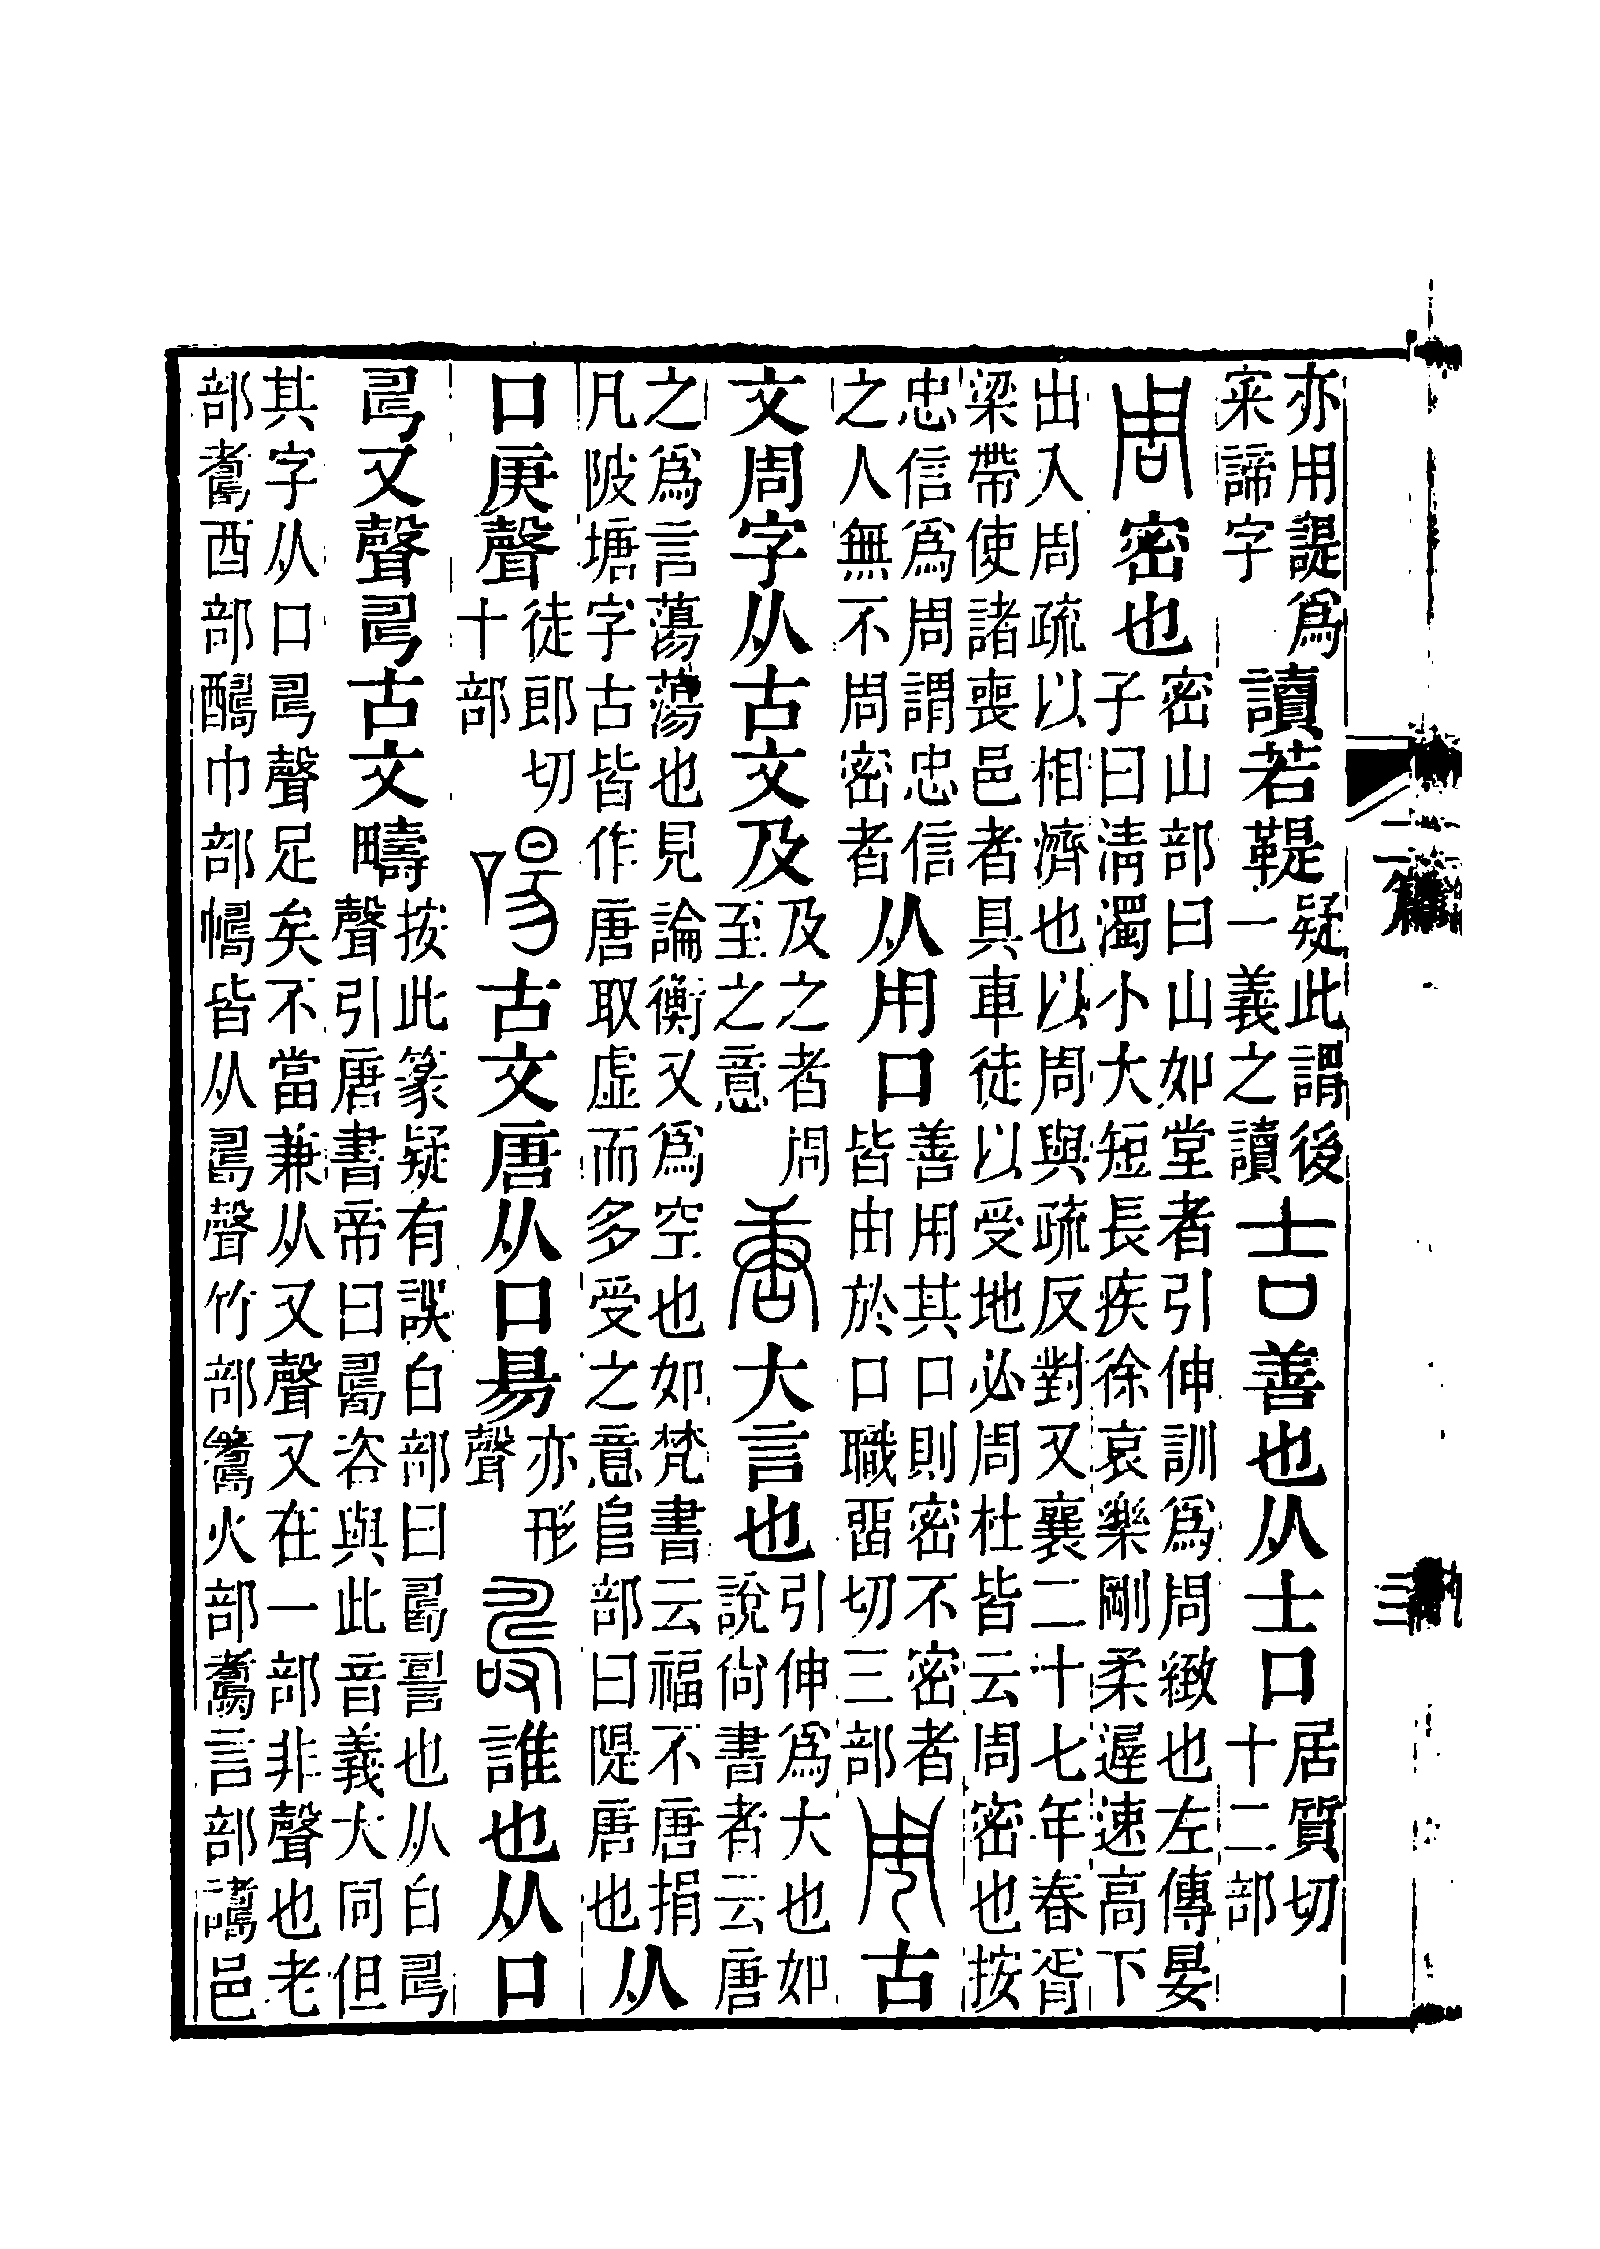 亦用諟爲寀諦字讀若鞮疑此謂後一義之讀吉善也从士口居質切十二部
周密也密山部曰山如堂者引伸訓爲周緻也左傳晏子曰淸濁小大短長疾徐哀樂剛柔遲速高下
出入周疏以相濟也以周與疏反對又襄二十七年春胥梁帶使諸喪邑者具車徒以受地必周杜皆云周密也按
忠信爲周謂忠信之人無不周密者从用口善用其口則密不密者皆由於口職畱切三部周古
文周字从古文及及之者周至之意唐大言也引伸爲大也如說尙書者云唐
之爲言蕩蕩也見論衡又爲空也如梵書云福不唐捐凡陂塘字古皆作唐取虛而多受之意𨸏部曰隄唐也从
口庚聲徒郎切十部啺古文唐从口昜亦形聲𠷎誰也从口
𠃬又聲𠃬古文疇按此篆疑有誤白部曰𤾊䛐也从白𠃬聲引唐書帝曰𤾊咨與此音義大同但
其字从口𠃬聲足矣不當兼从又聲又在一部非聲也老部𦓂酉部醻巾部幬皆从𠷎聲竹部籌火部燽言部譸邑
二篇
三